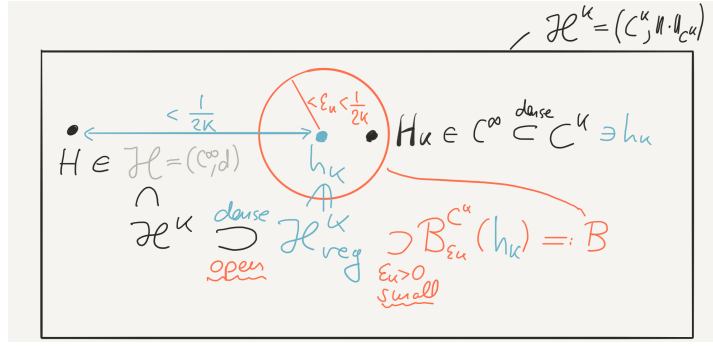 ℋᵏ = (Cᵏ, ‖·‖_Cᵏ)
< 1/2k
< εₖ < 1/2k
H ∈ ℋ = (C^∞, d)
hₖ
Hₖ ∈ C^∞ dense ⊂ Cᵏ ∋ hₖ
∩
ℋᵏ dense ⊃ open ℋᵏ_reg ⊃ B^{Cᵏ}_{εₖ}(hₖ) =: B
εₖ>0
small